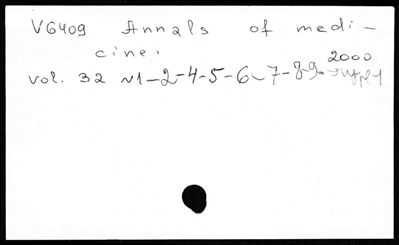 VG409 Annals of medi-
cine.
2000
vol. 32 N1-2-4-5-6-7-8-9-